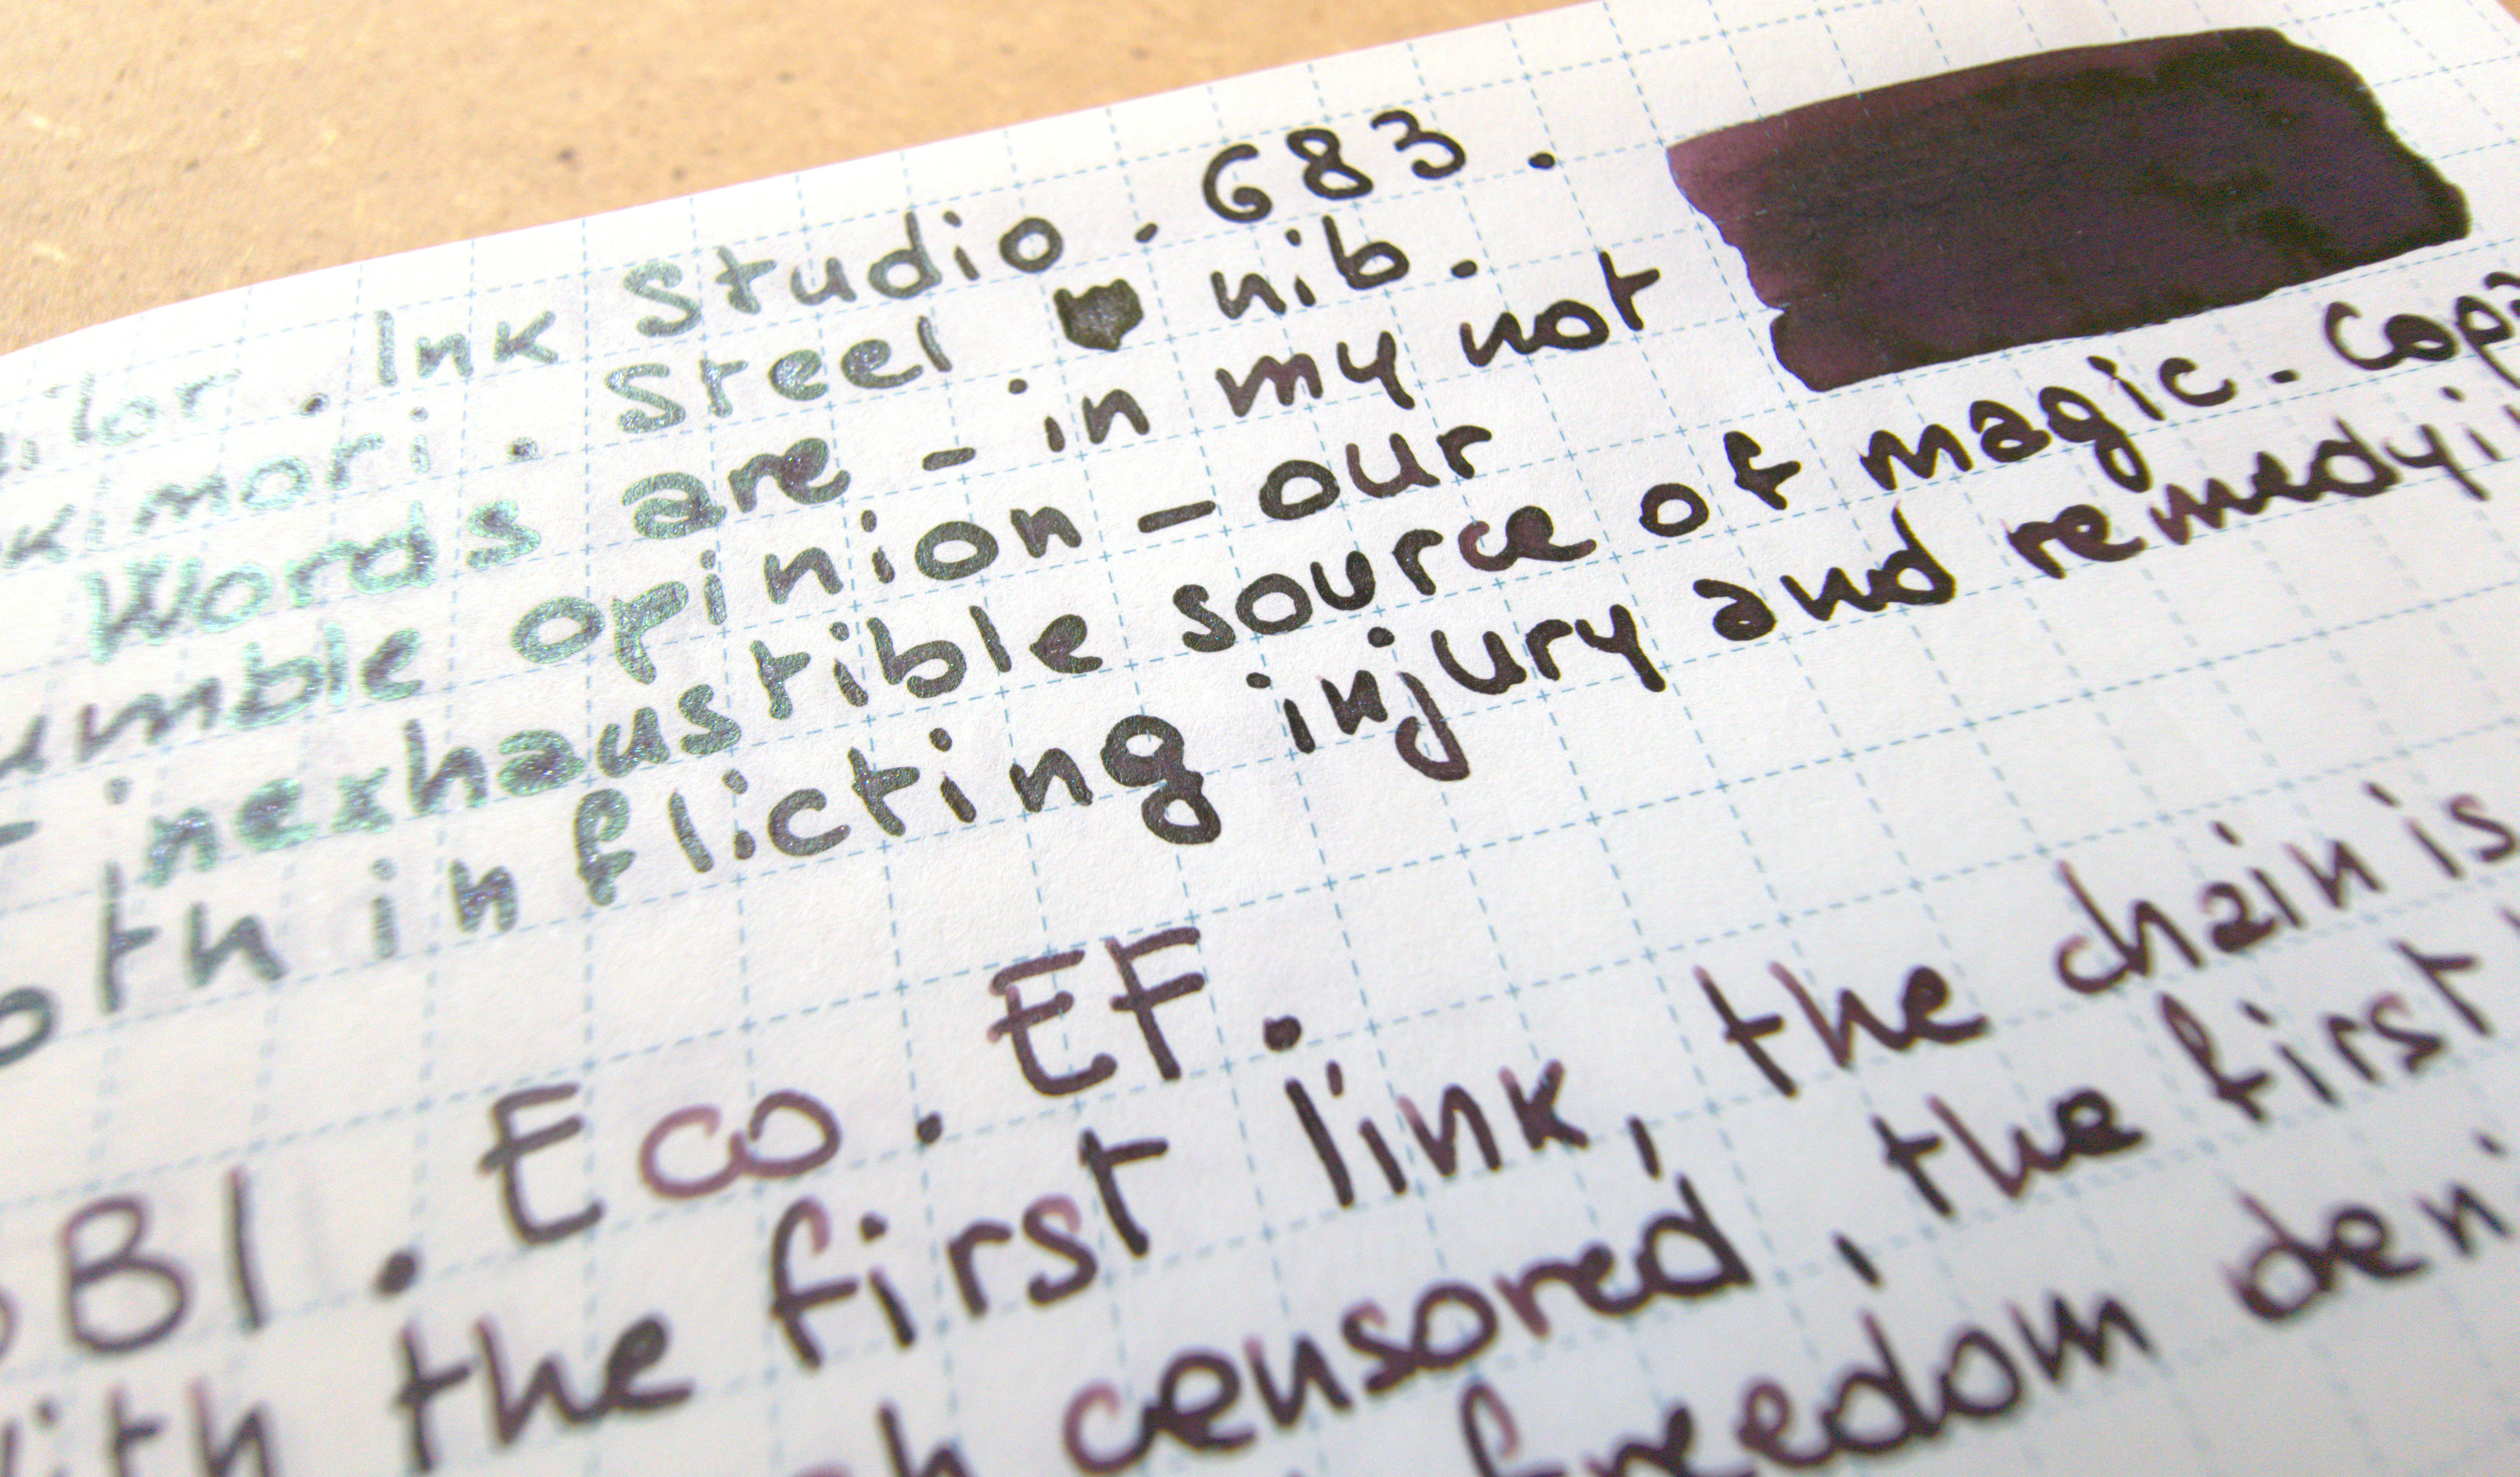 ilor. Ink Studio. 683.
k mori. Steel nib.
Words are - in my not
umble opinion - our
t inexhaustible source of magic. Cap
oth in flicting injury and remedyi
EF.
SBI. Eco.
ith the first link, the chain is
h censored, the first
freedom deni